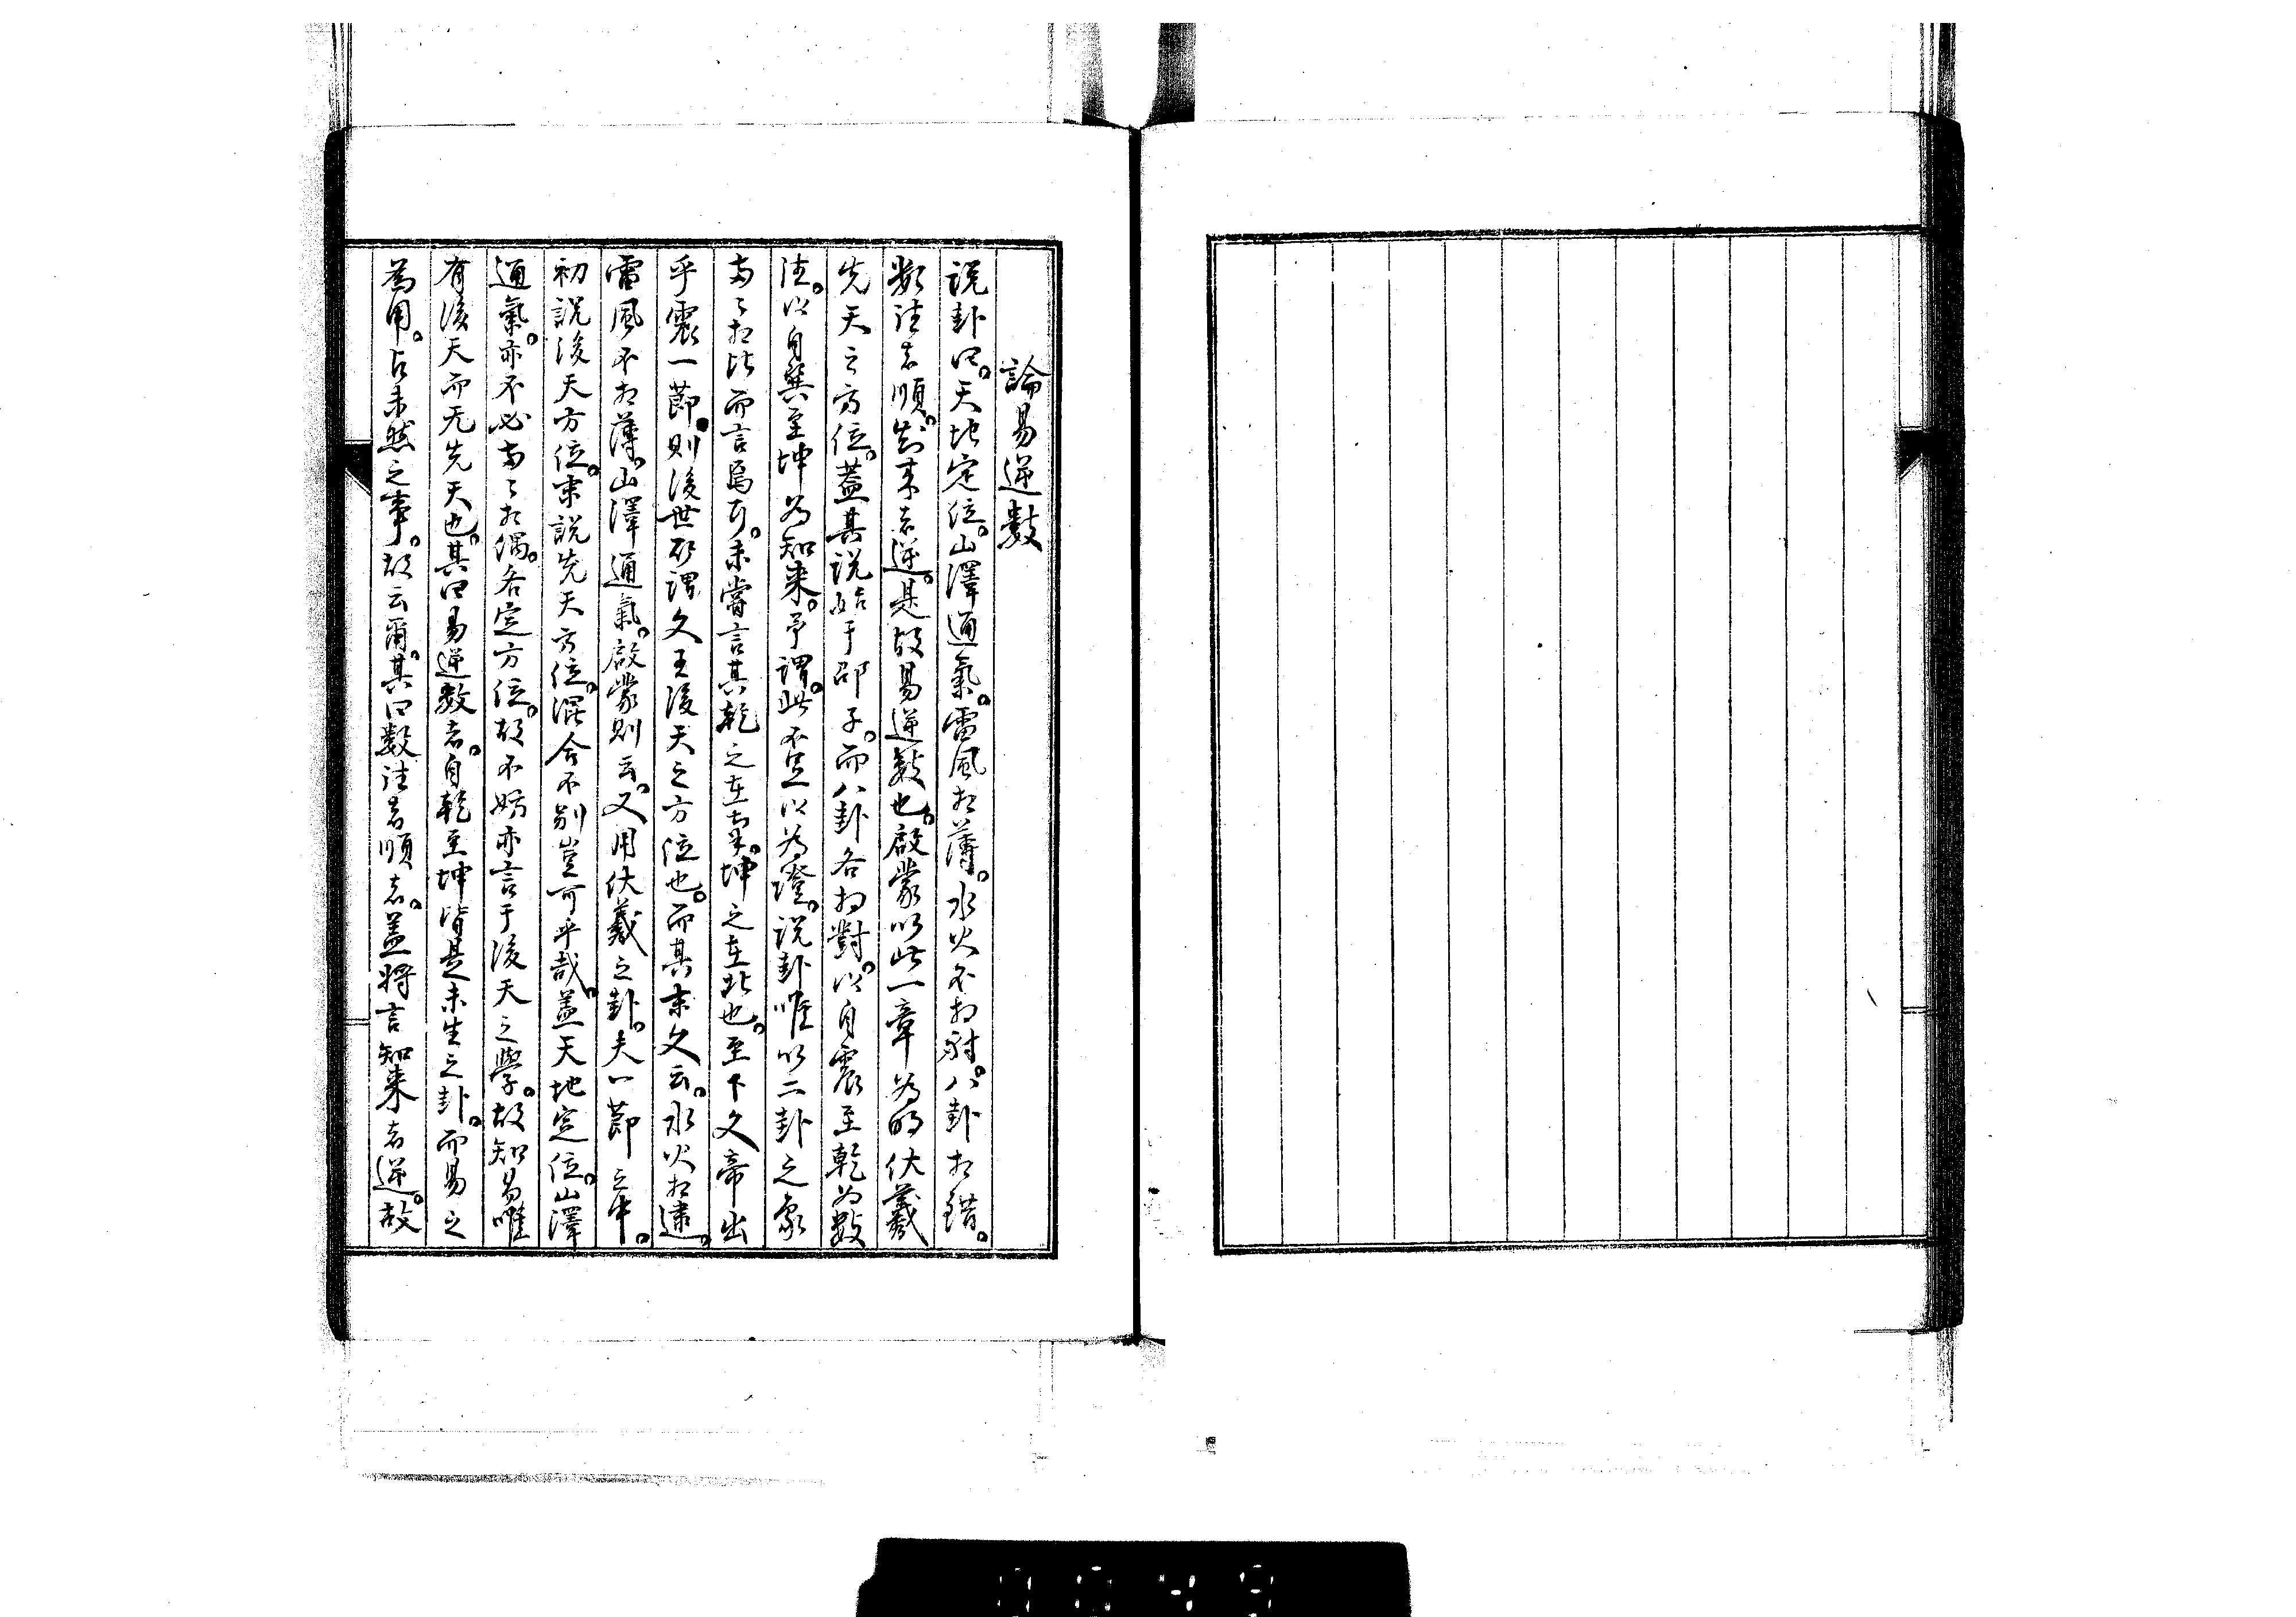 論易逆數
説卦曰。天地定位。山澤通氣。雷風相薄。水火不相射。八卦相錯。
數往者順。知來者逆。是故易逆數也。啟蒙以此一章為明伏羲
先天之方位。蓋其説始于邵子。而八卦各相對。以自震至乾為數
往。以自巽至坤為知來。予謂。此不足以為證。説卦唯以二卦之象
兩々相比而言焉耳。未嘗言其乾之在南。坤之在北也。至下文帝出
乎震一節。則後世所謂文王後天之方位也。而其末文云。水火相逮。
雷風不相薄。山澤通氣。啟蒙則云。又用伏羲之卦。夫一節之中。
初説後天方位。末説先天方位。混合不别豈可乎哉。蓋天地定位。山澤
通氣。亦不必兩々相偶。各定方位。故不妨亦言于後天之學。故知易唯
有後天而无先天也。其曰易逆數者。自乾至坤皆是未生之卦。而易之
為用。占未然之事。故云爾。其曰數往者順者。蓋將言知来者逆。故